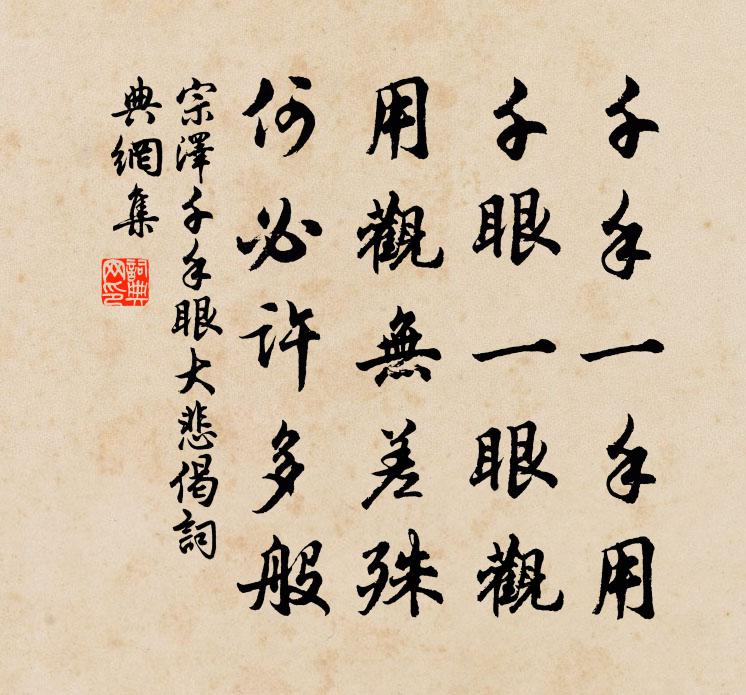 千手一手用
千眼一眼觀
用觀無差殊
何必許多般
宗澤千手眼大悲偈詞
典網集
詞典
网印